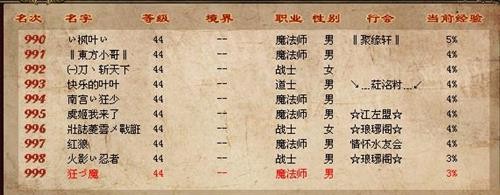 名次 名字 等级 境界 职业 性别 行会 当前经验
990 ぃ枫叶ぃ 44 -- 魔法师 男 ‖聚缘轩‖ 5%
991 ‖東方小哥‖ 44 -- 魔法师 男 4%
992 ㈠刀丶斩天下 44 -- 战士 女 4%
993 快乐的叶叶 44 -- 道士 男 ↘...莊洺籿...↙ 4%
994 南宫ぃ狂少 44 -- 魔法师 男 4%
995 虞姬我来了 44 -- 魔法师 男 ☆江左盟☆ 4%
996 壯誌菱雲メ戰誑 44 -- 战士 女 ☆琅琊阁☆ 4%
997 红狼 44 -- 魔法师 男 情怀水友会 4%
998 火影ぃ忍者 44 -- 魔法师 男 ☆琅琊阁☆ 3%
999 狂づ魔 44 -- 魔法师 男 3%